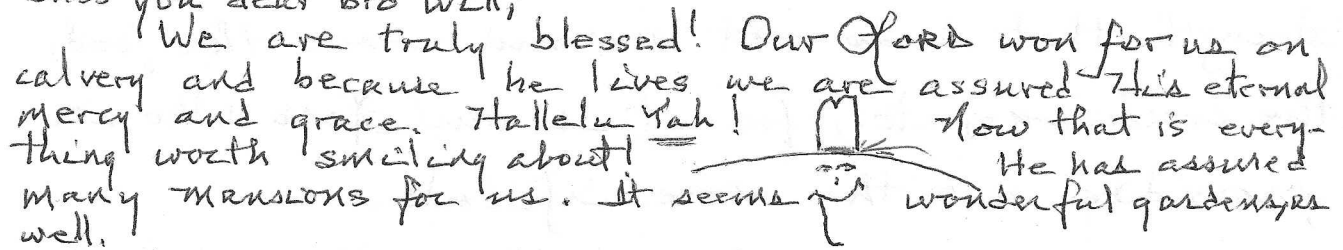 you dear bro Will,
We are truly blessed! Our LORD won for us on
calvery and because he lives we are assured His eternal
mercy and grace. Hallelu Yah! Now that is every-
thing worth smiling about! He has assured
many mansions for us. It seems wonderful gardens, as
well.